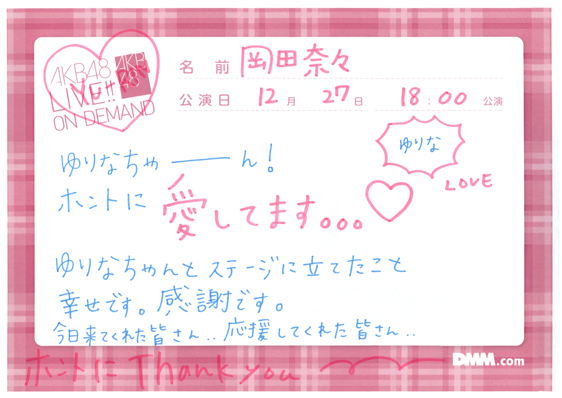 AKB48
LIVE!!
ON DEMAND
AKB
48
名前 岡田奈々
公演日 12月 27日 18:00 公演
ゆりなちゃーーん!
ゆりな
LOVE
ホントに 愛してます。。。
ゆりなちゃんとステージに立てたこと
幸せです。感謝です。
今日来てくれた皆さん..応援してくれた皆さん..
ホントに Thank you
DMM.com